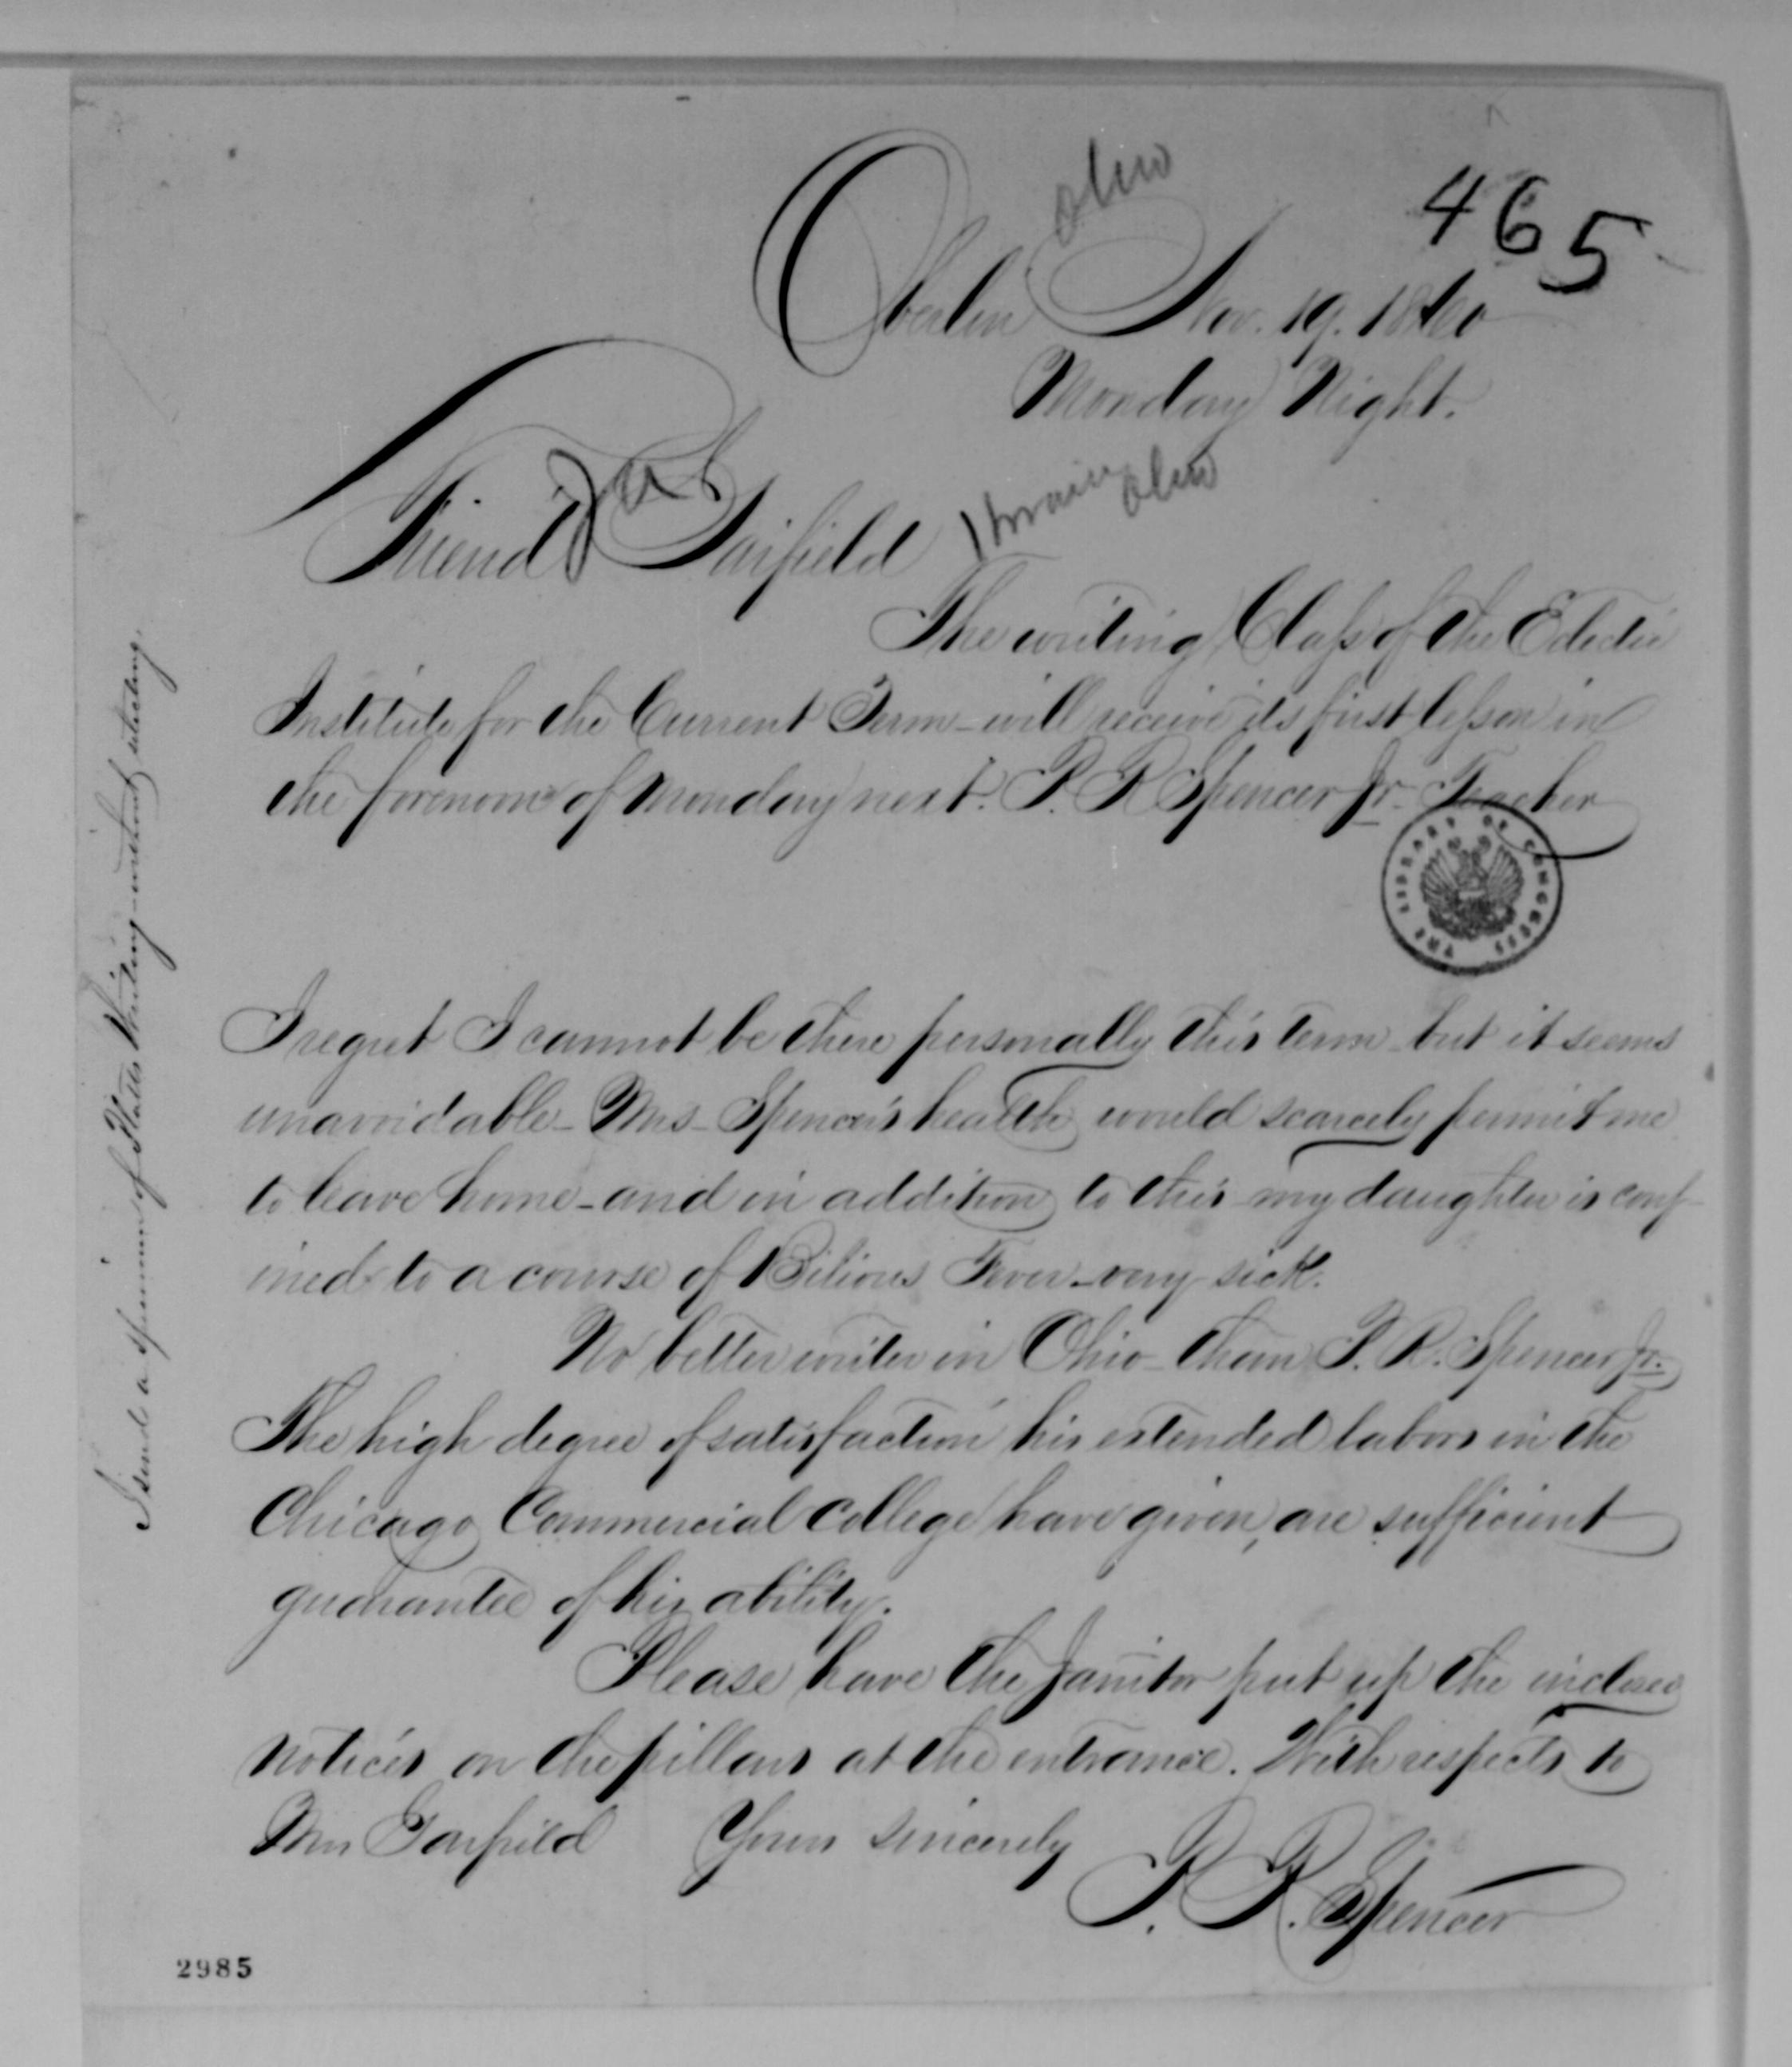 Ohio
465
Oberlin Nov. 19. 1860
Monday Night.
Friend Garfield
Hiram Ohio
The writing Class of the Eclectic
Institute for the Current Term - will receive its first lesson in
the forenoon of Monday next. P. R Spencer Jr - Teacher
THE LIBRARY OF CONGRESS
I regret I cannot be there personally this term - but it seems
unavoidable - Mrs - Spencer's health would scarcely permit me
to leave home - and in addition to this my daughter is conf-
ined to a course of Bilious Fever - very sick.
No better writer in Ohio - than P. R. Spencer Jr.
The high degree of satisfaction his extended labors in the
Chicago Commercial College have given, are sufficient
guarantee of his ability.
Please have the Janitor put up the inclosed
notices on the pillars at the entrance. With respects to
Mrs Garfield Yours sincerely
P. R. Spencer
I send a specimen of Platts Writing - without selecting.
2985